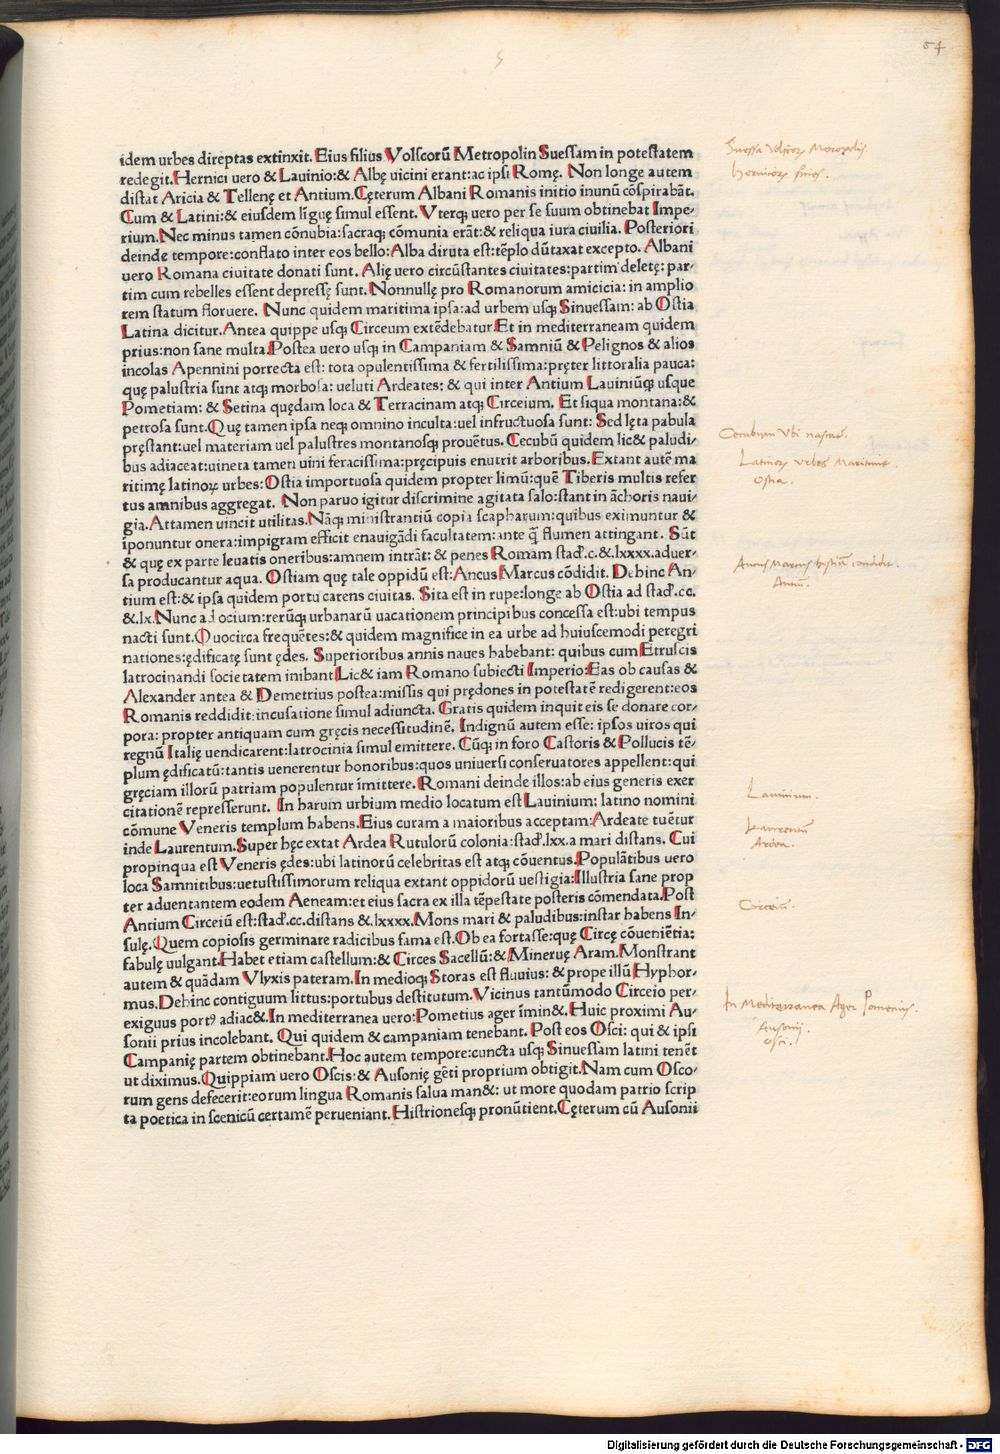 54
idem urbes direptas extinxit. Eius filius Volscorũ Metropolin Suessam in potestatem
redegit. Hernici uero & Lauinio: & Albę uicini erant: ac ipsi Romę. Non longe autem
distat Aricia & Tellenę et Antium. Cęterum Albani Romanis initio inunũ cõspirabãt.
Cum & Latini: & eiusdem lĩguę simul essent. Vterqꝫ uero per se suum obtinebat Impe-
rium. Nec minus tamen cõnubia: sacraqꝫ cõmunia erãt: & reliqua iura ciuilia. Posteriori
deinde tempore: conflato inter eos bello: Alba diruta est: tẽplo dũtaxat excepto. Albani
uero Romana ciuitate donati sunt. Alię uero circũstantes ciuitates: partim deletę: par-
tim cum rebelles essent depressę sunt. Nonnullę pro Romanorum amicicia: in amplio
rem statum floruere. Nunc quidem maritima ipsa: ad urbem usqꝫ Sinuessam: ab Ostia
Latina dicitur. Antea quippe usqꝫ Circeum extẽdebatur. Et in mediterraneam quidem
prius: non sane multa. Postea uero usqꝫ in Campaniam & Samniũ & Pelignos & alios
incolas Apennini porrecta est: tota opulentissima & fertilissima: pręter littoralia pauca:
quę palustria sunt atqꝫ morbosa: ueluti Ardeates: & qui inter Antium Lauiniũqꝫ usque
Pometiam: & Setina quędam loca & Terracinam atqꝫ Circeium. Et siqua montana: &
petrosa sunt. Quę tamen ipsa neqꝫ omnino inculta: uel infructuosa sunt: Sed lęta pabula
pręstant: uel materiam uel palustres montanosqꝫ prouẽtus. Cecubũ quidem lic& paludi-
bus adiaceat: uineta tamen uini feracissima: pręcipuis enutrit arboribus. Extant autẽ ma
ritimę latinoꝝ urbes: Ostia importuosa quidem propter limũ: quẽ Tiberis multis refer
tus amnibus aggregat. Non paruo igitur discrimine agitata salo: stant in ãchoris naui-
gia. Attamen uincit utilitas. Nãqꝫ ministrantiũ copia scapharum: quibus eximuntur &
ĩponuntur onera: impigram efficit enauigãdi facultatem: ante q̃ flumen attingant. Sũt
& quę ex parte leuatis oneribus: amnem intrãt: & penes Romam stad̉. c. & .lxxxx. aduer-
sa producantur aqua. Ostiam quę tale oppidũ est: Ancus Marcus cõdidit. Dehinc An-
tium est: & ipsa quidem portu carens ciuitas. Sita est in rupe: longe ab Ostia ad stad̉. cc.
& .lx. Nunc ad ocium: rerũqꝫ urbanarũ uacationem principibus concessa est: ubi tempus
nacti sunt. Quocirca frequẽtes: & quidem magnifice in ea urbe ad huiuscemodi peregri
nationes: ędificatę sunt ędes. Superioribus annis naues habebant: quibus cum Etruscis
latrocinandi societatem inibant. Lic& iam Romano subiecti Imperio: Eas ob causas &
Alexander antea & Demetrius postea: missis qui prędones in potestatẽ redigerent: eos
Romanis reddidit: incusatione simul adiuncta. Gratis quidem inquit eis se donare cor-
pora: propter antiquam cum gręcis necessitudinẽ. Indignũ autem esse: ipsos uiros qui
regnũ Italię uendicarent: latrocinia simul emittere. Cũqꝫ in foro Castoris & Pollucis tẽ-
plum ędificatũ: tantis uenerentur honoribus: quos uniuersi conseruatores appellent: qui
gręciam illorũ patriam populentur ĩmittere. Romani deinde illos: ab eius generis exer
citationẽ represserunt. In harum urbium medio locatum est Lauinium: latino nomini
cõmune Veneris templum habens. Eius curam a maioribus acceptam: Ardeate tuẽtur
inde Laurentum. Super hęc extat Ardea Rutulorũ colonia: stad̉. lxx. a mari distans. Cui
propinqua est Veneris ędes: ubi latinorũ celebritas est atqꝫ cõuentus. Populãtibus uero
loca Samnitibus: uetustissimorum reliqua extant oppidorũ uestigia: Illustria sane prop
ter aduentantem eodem Aeneam: et eius sacra ex illa tẽpestate posteris cõmendata. Post
Antium Circeiũ est: stad̉. cc. distans & .lxxxx. Mons mari & paludibus: instar habens In-
sulę. Quem copiosis germinare radicibus fama est. Ob ea fortasse: quę Circę cõueniẽtia:
fabulę uulgant. Habet etiam castellum: & Circes Sacellũ: & Mineruę Aram. Monstrant
autem & quãdam Vlyxis pateram. In medioqꝫ Storas est fluuius: & prope illũ Hyphor-
mus. Dehinc contiguum littus: portubus destitutum. Vicinus tantũmodo Circeio per-
exiguus portꝰ adiac&. In mediterranea uero: Pometius ager ĩmin&. Huic proximi Au-
sonii prius incolebant. Qui quidem & campaniam tenebant. Post eos Osci: qui & ipsi
Campanię partem obtinebant. Hoc autem tempore: cuncta usqꝫ Sinuessam latini tenẽt
ut diximus. Quippiam uero Oscis: & Ausonię gẽti proprium obtigit. Nam cum Osco-
rum gens defecerit: eorum lingua Romanis salua man&: ut more quodam patrio scrip
ta poetica in scenicũ certamẽ perueniant. Histrionesqꝫ pronũtient. Cęterum cũ Ausonii
Suessa Volscoꝝ Metropolis.
Hernicoꝝ fines.
Cecubum Vbi nascatʳ.
Latinoꝝ urbes Maritimę.
Ostia.
Ancus Marcus hostiam condidit.
Antiũ.
Lauinium.
Laurentũ
Ardea.
Circeiũ.
In Mediterranea Ager Pometius.
Ausonij.
Osci.
Digitalisierung gefördert durch die Deutsche Forschungsgemeinschaft - DFG